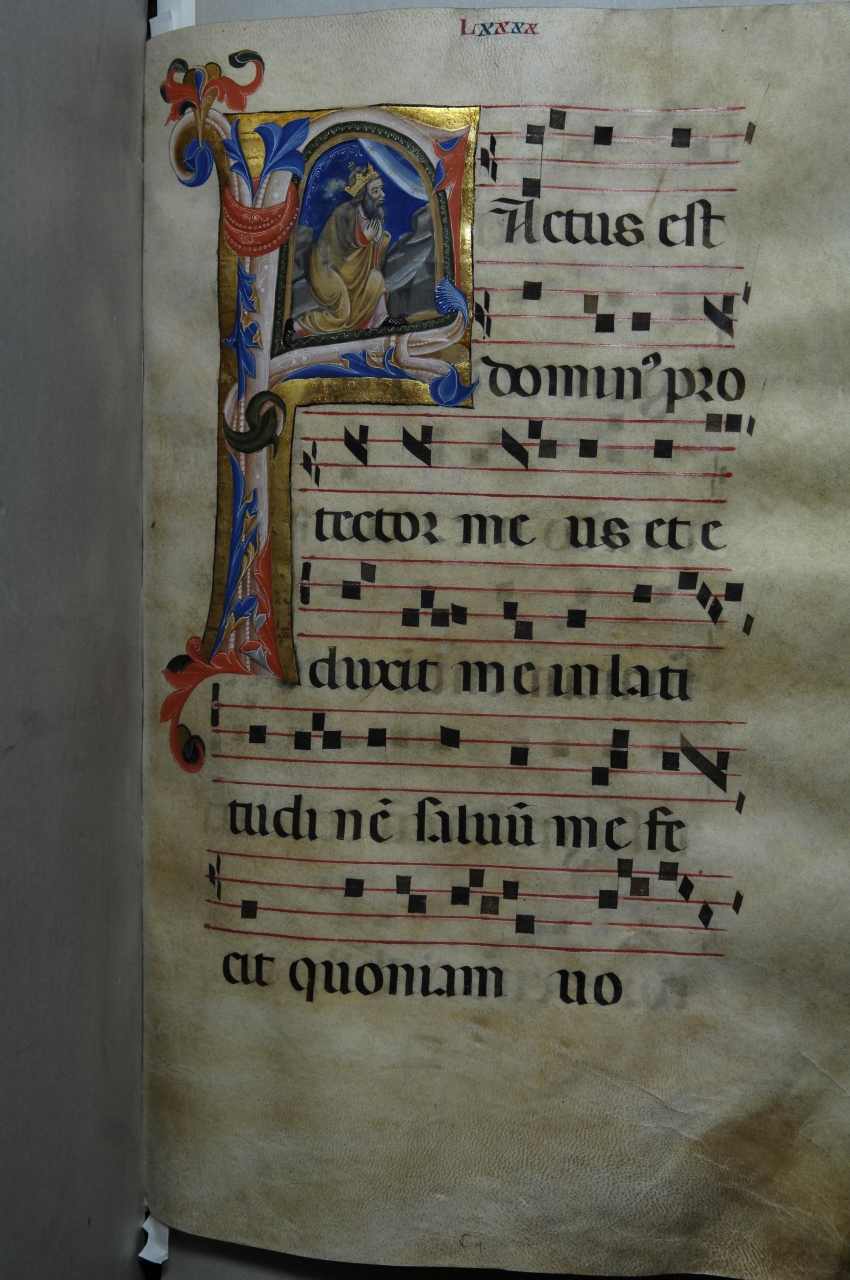 Lxxxx
FActus est
dominꝰ pro
tector me us et e
duxit me in lati
tudi nē saluū me fe
cit quoniam uo